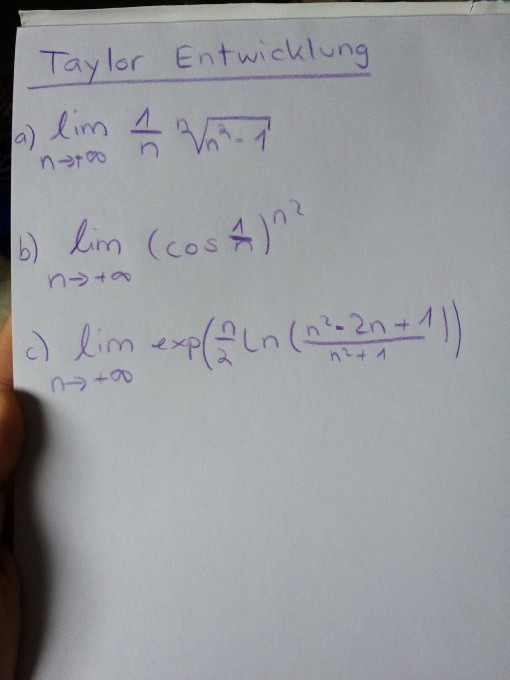 Taylor Entwicklung
a) lim n→+∞ 1/n ⁿ√(n² - 1)
b) lim n→+∞ (cos 1/n)^n²
c) lim n→+∞ exp(n/2 ln(n² - 2n + 1 / n² + 1))